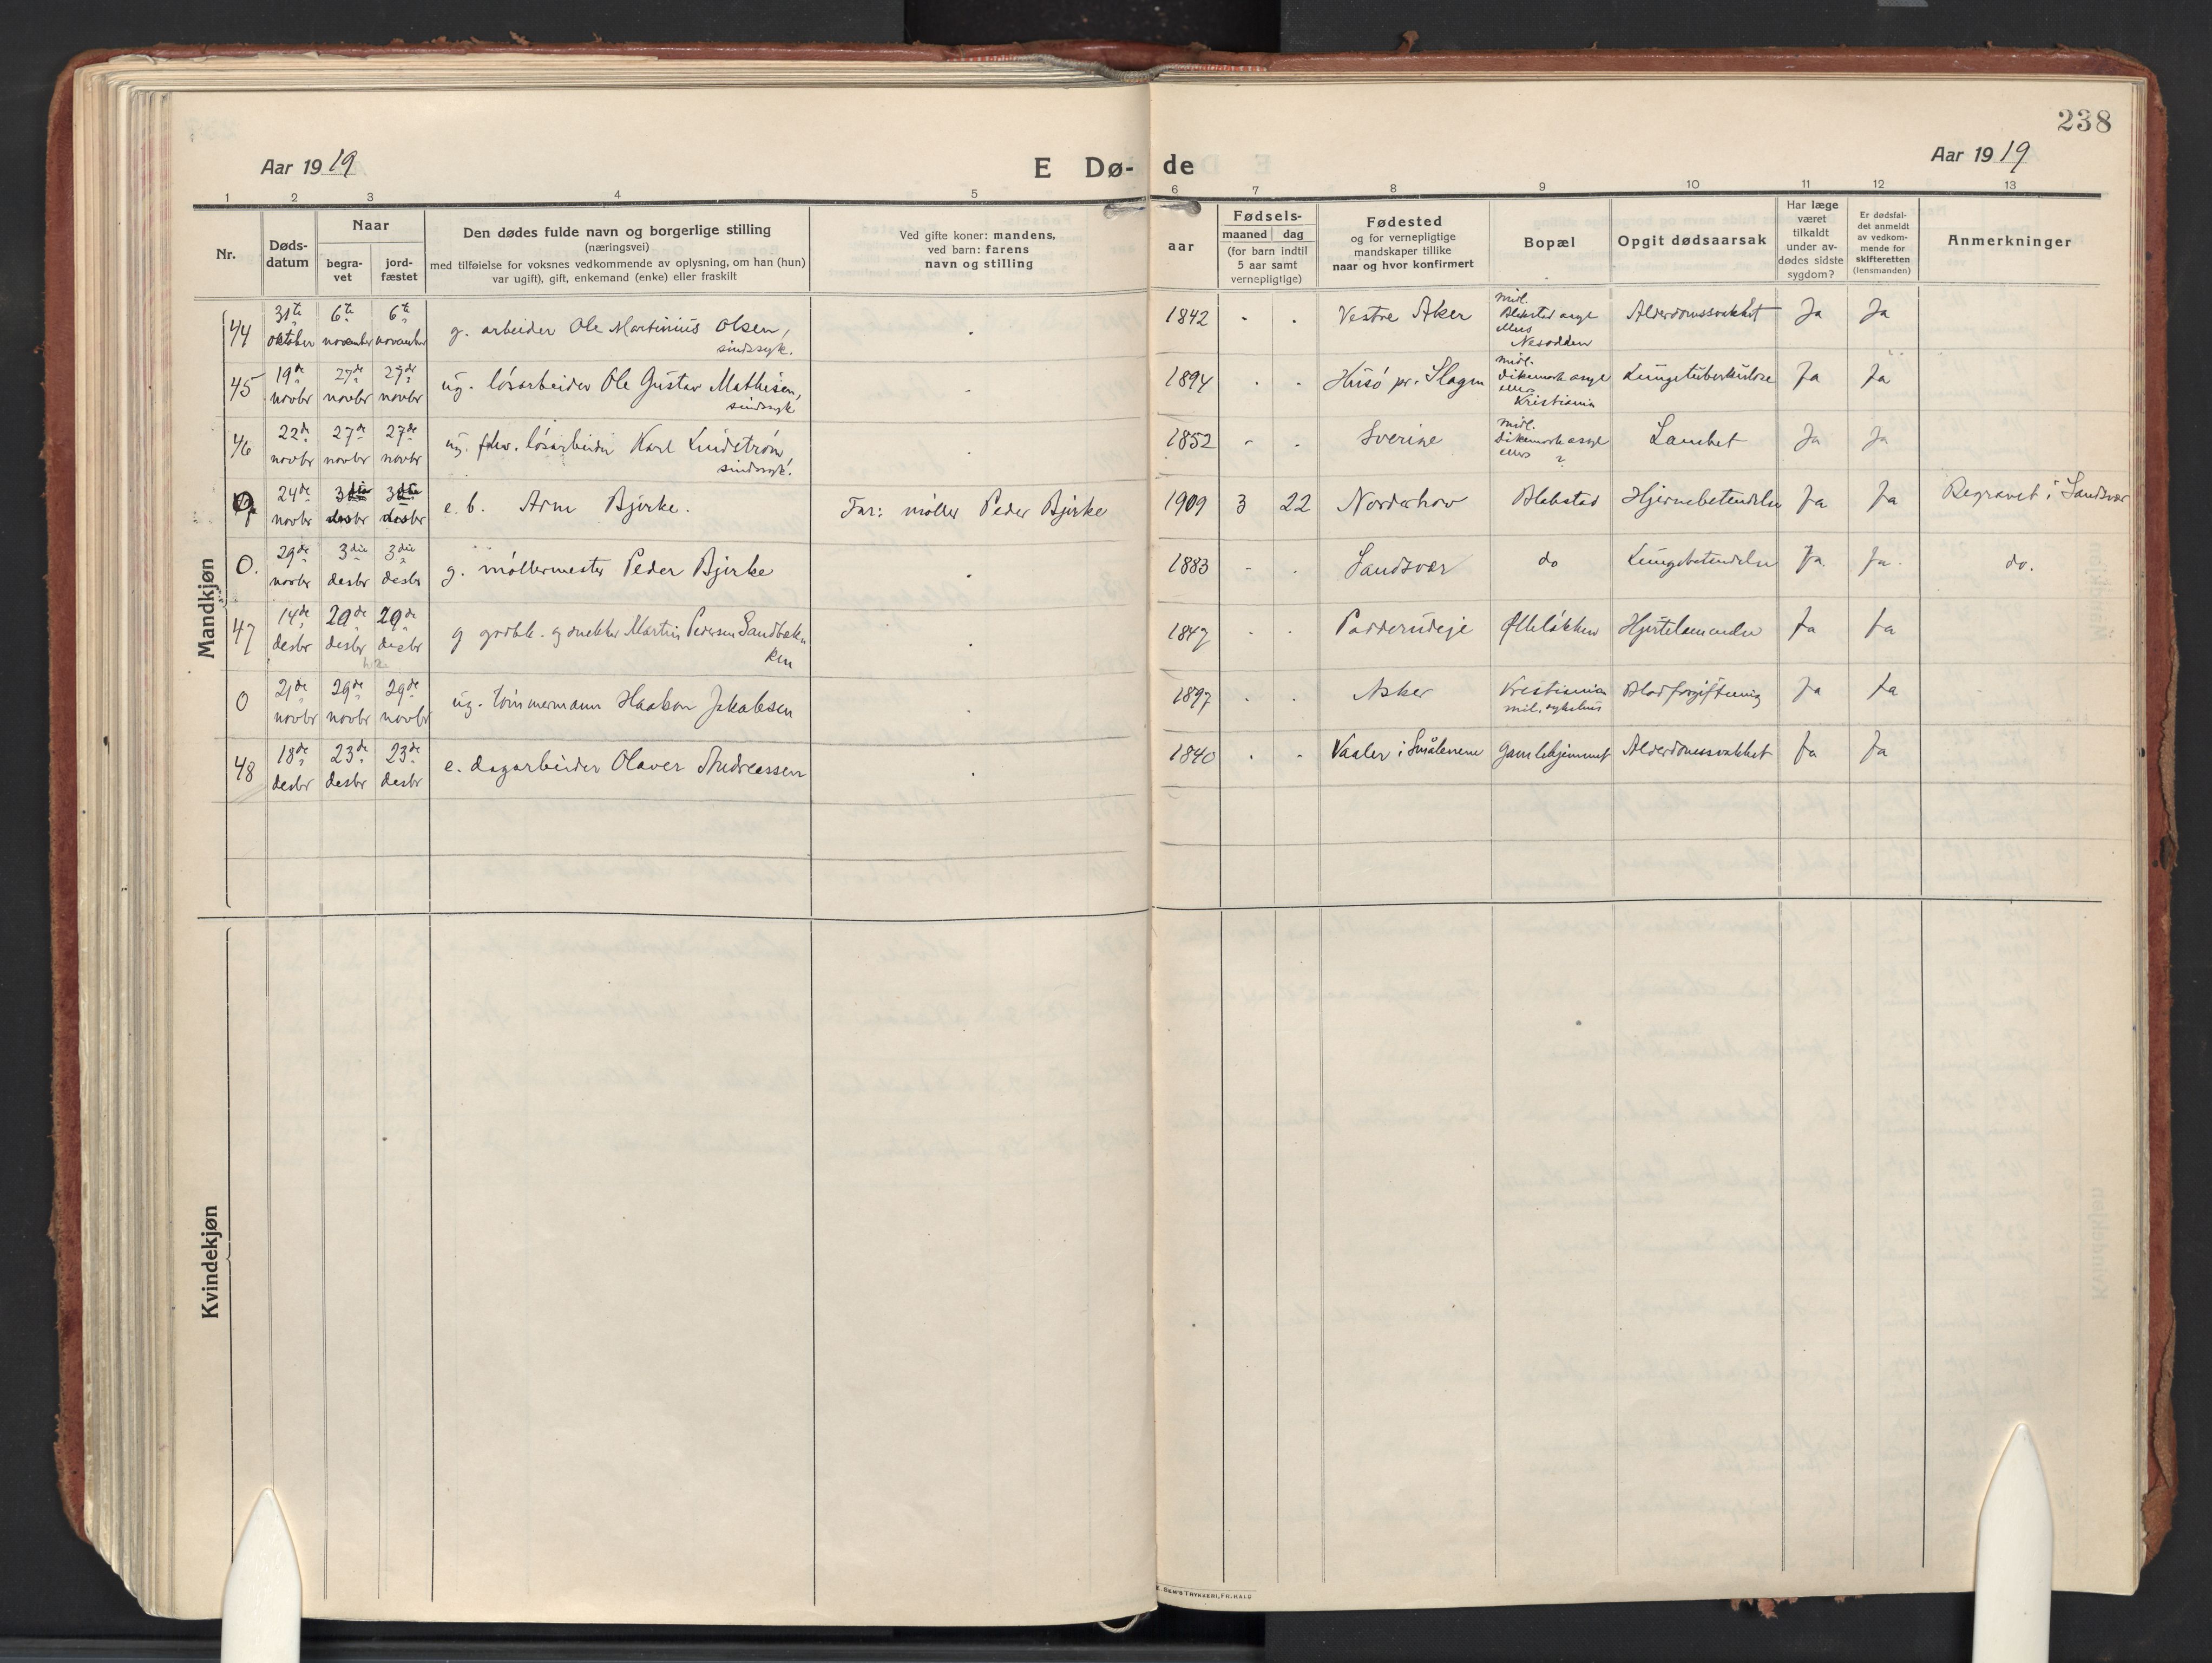 238
Aar 1919
E Dø-de
Aar 1919
1 2 3 4 5 6 7 8 9 10 11 12 13
Nr.
Døds-
datum
Naar
begra-
vet
jord-
fæstet
Den dødes fulde navn og borgerlige stilling
(næringsvei)
med tilføielse for voksnes vedkommende av oplysning, om han (hun)
var ugift), gift, enkemand (enke) eller fraskilt
Ved gifte koner: mandens,
ved barn: farens
navn og stilling
aar
Fødsels-
maaned dag
(for barn indtil
5 aar samt
vernepligtige)
Fødested
og for vernepligtige
mandskaper tillike
naar og hvor konfirmert
Bopæl
Opgit dødsaarsak
Har læge
været
tilkaldt
under av-
dødes sidste
sygdom?
Er dødsfal-
det anmeldt
av vedkom-
mende for
skifteretten
(lensmanden)
Anmerkninger
Mandkjøn
44 31te oktober 6te november 6te november g. arbeider Ole Martinius Olsen, sindssyk. 1842 Vestre Aker midl. Blakstad asyl ellers Nesodden Alderdomssvakhet Ja Ja
45 19de novbr 27de novbr 27de novbr ug. løsarbeider Ole Gustav Mathisen, sindssyk 1894 Husö pr. Slagen midl. Dikemark asyl ellers Kristiania Lungetuberkulose Ja Ja
46 22de novbr 27de novbr 27de novbr ug. fhv. løsarbeider Karl Lindstrøm, sindssyk. 1852 Sverige midl. Dikemark asyl ellers ? Lamhet Ja Ja
0 24de novbr 3die desbr 3die desbr e. b. Arne Bjerke. Far: møller Peder Bjerke 1909 3 22 Norderhov Blakstad Hjernebetendelse Ja Ja Begravet i Sandsvær
0. 29de novbr 3die desbr 3die desbr g. møllermester Peder Bjerke 1883 Sandsvær do Lungebetendelse Ja Ja. do.
47 14de desbr 20de desbr 20de desbr g gaardbr. og snekker Martin Pedersen Sandbakken 1847 Padderudeje Øllelökken Hjertelammelse Ja Ja
0 21de novbr 29de novbr 29de novbr ug. tømmermann Haakon Jakobsen 1897 Asker Kristiania mil. sykehus Blodforgiftning Ja Ja
48 18de desbr 23de desbr 23de desbr e. dagarbeider Olaves Andreassen 1840 Vaaler i Smålenene Gamlehjemmet Alderdomssvakhet Ja Ja
Kvindekjøn
TRYKKERI, FR.HALD